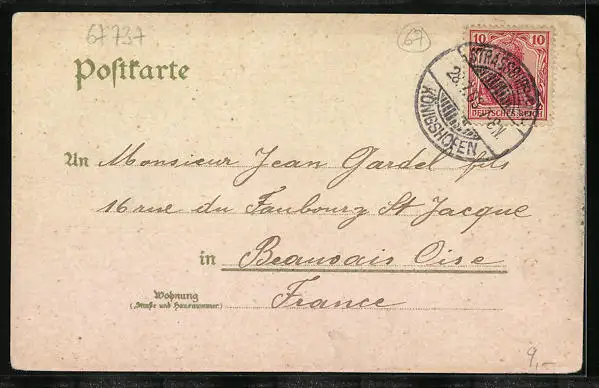 67737
67
Postkarte
10 10
DEUTSCHES REICH
STRASSBURG
KÖNIGSHOFEN
An Monsieur Jean Gardel fils
16 rue du Faubourg St Jacque
in Beauvais Oise
France
Wohnung
(Straße und Hausnummer)
9,-